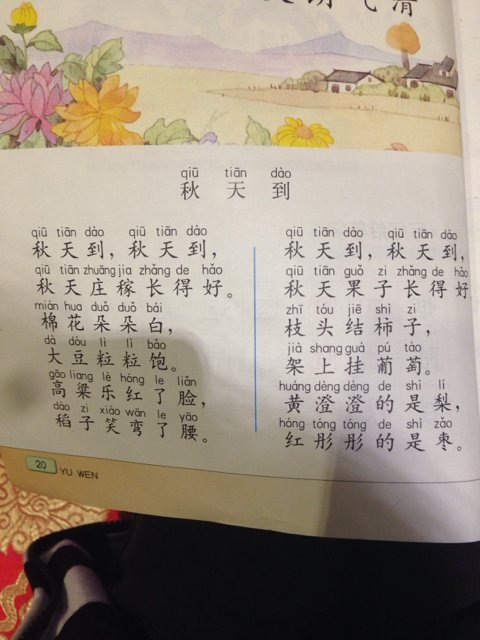 气清
qiū tiān dào
秋天到
qiū tiān dào qiū tiān dào
秋天到，秋天到，
qiū tiān zhuāng jia zhǎng de hǎo
秋天庄稼长得好。
mián hua duǒ duǒ bái
棉花朵朵白，
dà dòu lì lì bǎo
大豆粒粒饱。
gāo liang lè hóng le liǎn
高粱乐红了脸，
dào zi xiào wān le yāo
稻子笑弯了腰。
qiū tiān dào qiū tiān dào
秋天到，秋天到，
qiū tiān guǒ zi zhǎng de hǎo
秋天果子长得好
zhī tóu jiē shì zi
枝头结柿子，
jià shang guà pú táo
架上挂葡萄。
huáng dèng dèng de shì lí
黄澄澄的是梨，
hóng tóng tóng de shì zǎo
红彤彤的是枣。
20 YU WEN